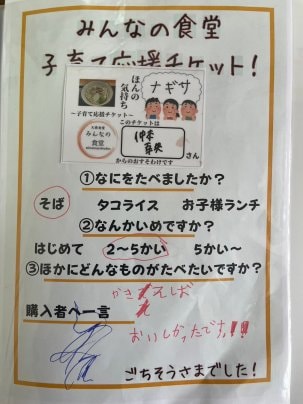 みんなの食堂
子育て応援チケット!
ほんの
気持ち
ナギサ
~子育て応援チケット~
このチケットは
みんなの
食堂
さん
からのおすそわけです
①なにをたべましたか?
そば タコライス お子様ランチ
②なんかいめですか?
はじめて 2~5かい 5かい~
③ほかにどんなものがたべたいですか?
購入者へ一言
おいしかったです!!!
ごちそうさまでした!